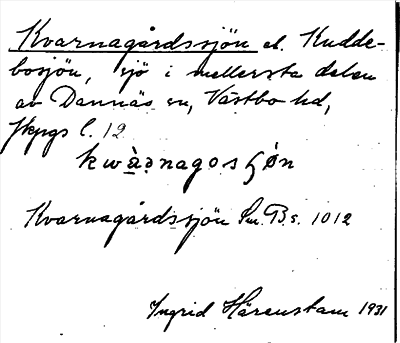 Kvarnagårdssjön el. Kudde-
bosjön, sjö i mellersta delen
av Dannäs sn, Västbo hd,
Jkpgs l. 12
kwàrnagosʃön
Kvarnagårdssjön Sm. B. s. 1012
Ingrid Härenstam 1931